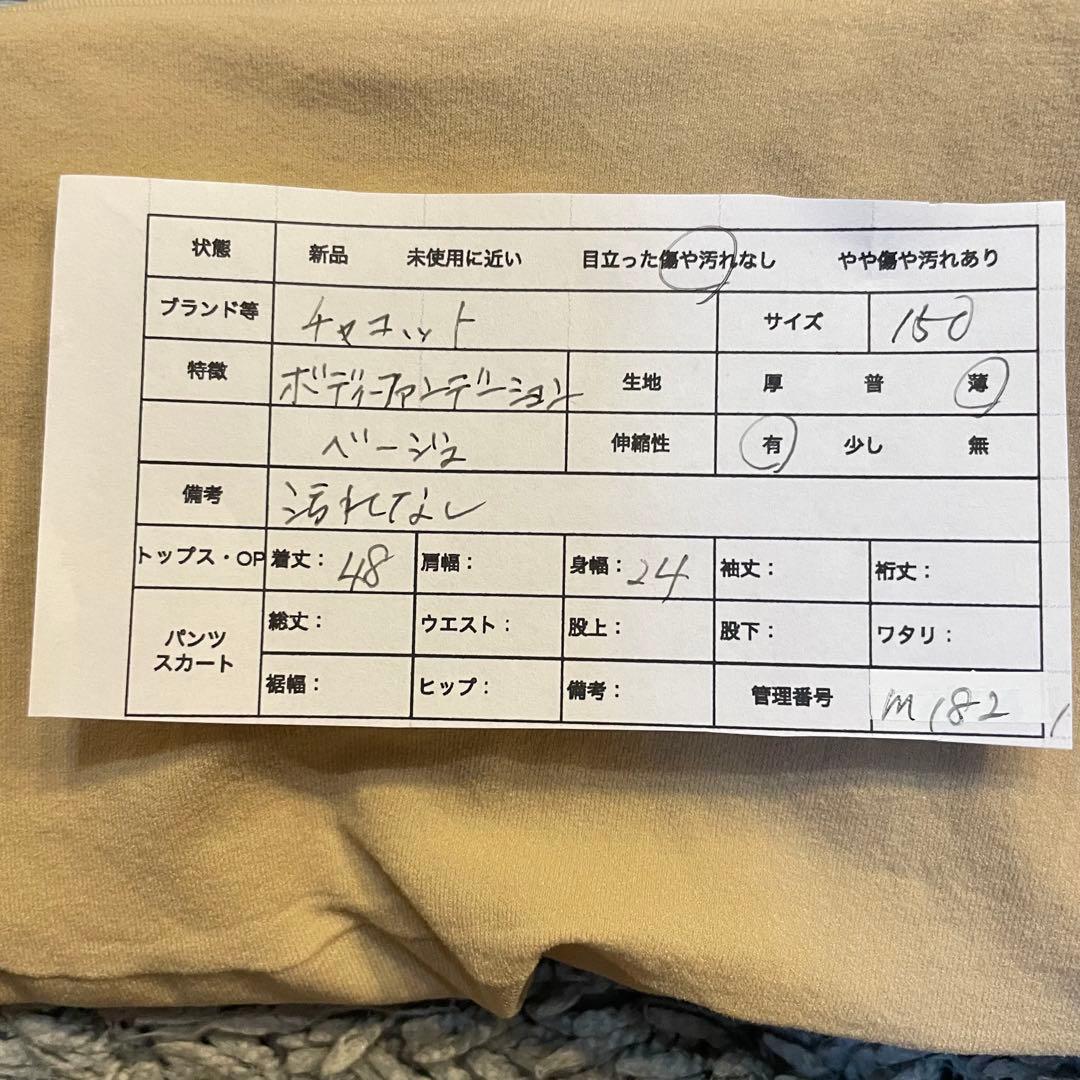 状態 新品 未使用に近い 目立った傷や汚れなし やや傷や汚れあり
ブランド等 チャコット サイズ 150
特徴 ボディーファンデーション 生地 厚 普 薄
ベージュ 伸縮性 有 少し 無
備考 汚れなし
トップス・OP 着丈: 48 肩幅: 身幅: 24 袖丈: 裄丈:
パンツ スカート 総丈: ウエスト: 股上: 股下: ワタリ:
裾幅: ヒップ: 備考: 管理番号 m182